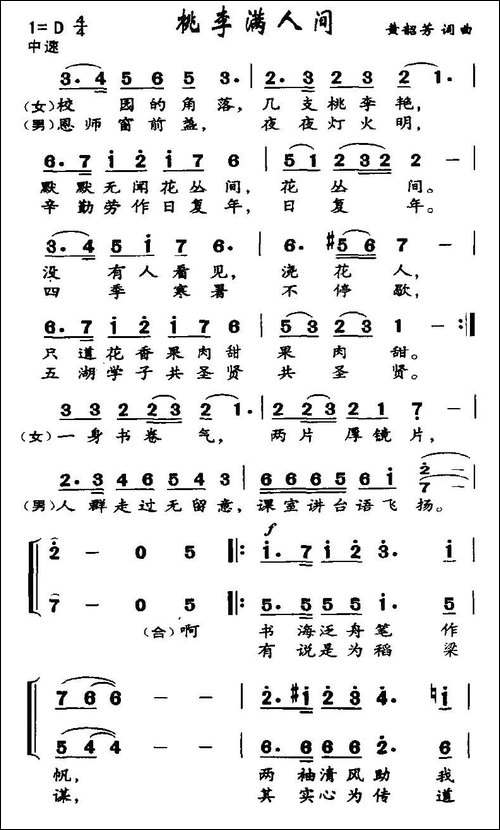 1=D 4/4 桃李满人间 黄韶芳 词曲
中速
3·4 5 6 5 3· | 2·3 2 3 2 2 1·
(女)校 园的角落, 几支桃李艳,
(男)恩师窗前盏, 夜夜灯火明,
6·7 1 2 1 7 6 | 5 1 2 2 3 2 2 —
默默无闻花丛间, 花丛间。
辛勤劳作日复年, 日复年。
3·4 5 1 7 6· | 6· #5 6 7 —
没有人看见, 浇花人,
四季寒暑 不停歇,
6·7 1 2 1 7 6 | 5 3 2 2 3 1 — :||
只道花香果肉甜 果肉甜。
五湖学子共圣贤 共圣贤。
3 3 2 2 3 2 2 1· | 2·1 2 3 2 1 7 —
(女)一身书卷气, 两片厚镜片,
2·3 4 6 5 4 3 | 6 6 6 5 6 1 2/7 —
(男)人群走过无留意, 课室讲台语飞扬。
f
2 — 0 5 ||: 1·7 1 2 3· 1
7 — 0 5 ||: 5·5 5 5 1· 5
(合)啊 书海泛舟笔作
有说是为稻粱
7 6 6 — | 2·#1 2 3 4 2· ♮1
5 4 4 — | 6·6 6 6 6 2· 6
帆, 两袖清风助我
谋, 其实心为传道